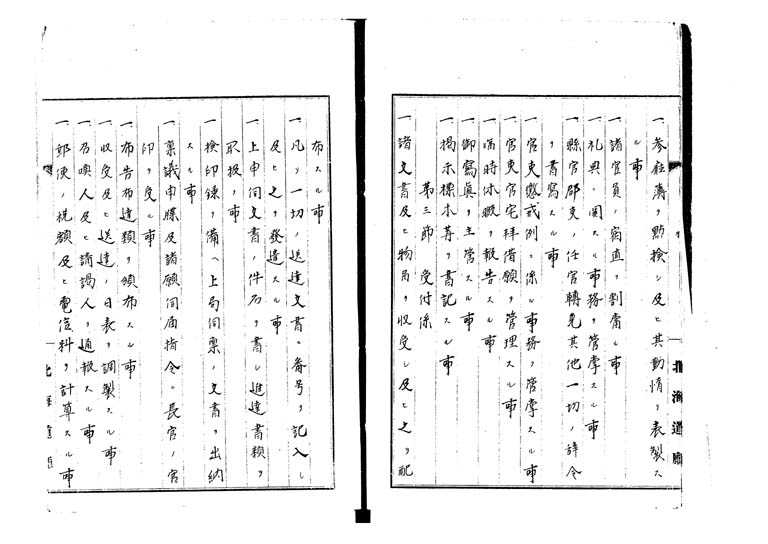 一 参庁簿ヲ點検シ及ヒ其勤惰ヲ表製ス
ル事
一 諸官員ノ宿直ヲ割賦スル事
一 礼典ニ関スル事務ヲ管掌スル事
一 縣官郡吏ノ任官轉免其他一切ノ辞令
ヲ書寫スル事
一 官吏懲戒例ニ係ル事務ヲ管掌スル事
一 官吏官宅拜借願ヲ管理スル事
一 臨時休暇ヲ報告スル事
一 御寫真ヲ主管スル事
一 掲示標木等ヲ書記スル事
第三節 受付係
一 諸文書及ヒ物品ヲ收受シ及ヒ之ヲ配
北海道廳
布スル事
一 凡ソ一切ノ送達文書ニ番号ヲ記入シ
及ヒ之ヲ發遣スル事
一 上申伺文書ノ件名ヲ書シ進達書類ヲ
取扱フ事
一 検印録ヲ備ヘ上局伺票ノ文書ヲ出納
スル事
一 稟議申牒及諸願伺届指令ニ長官ノ官
印ヲ受ル事
一 布告布達類ヲ頒布スル事
一 收受及ヒ送達ノ日表ヲ調製スル事
一 召喚人及ヒ請謁人ヲ通報スル事
一 郵便ノ税額及ヒ電信料ヲ計算スル事